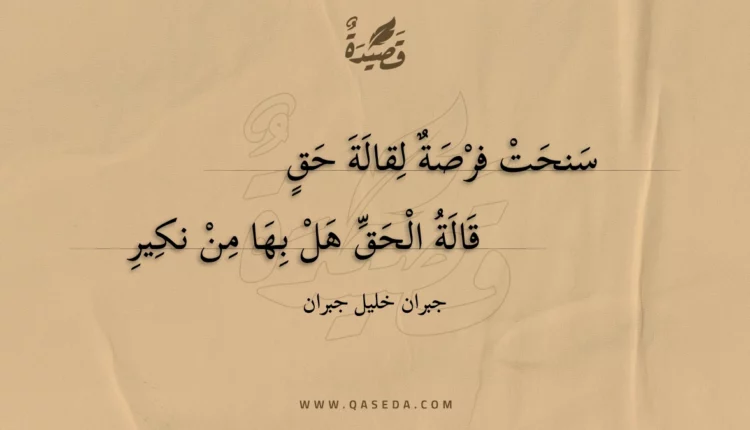 قَصِيْدَةٌ
سَنحَتْ فرْصَةٌ لِقالَةَ حَقٍ
قَالَةُ الْحَقِّ هَلْ بِهَا مِنْ نكِيرِ
جبران خليل جبران
WWW.QASEDA.COM